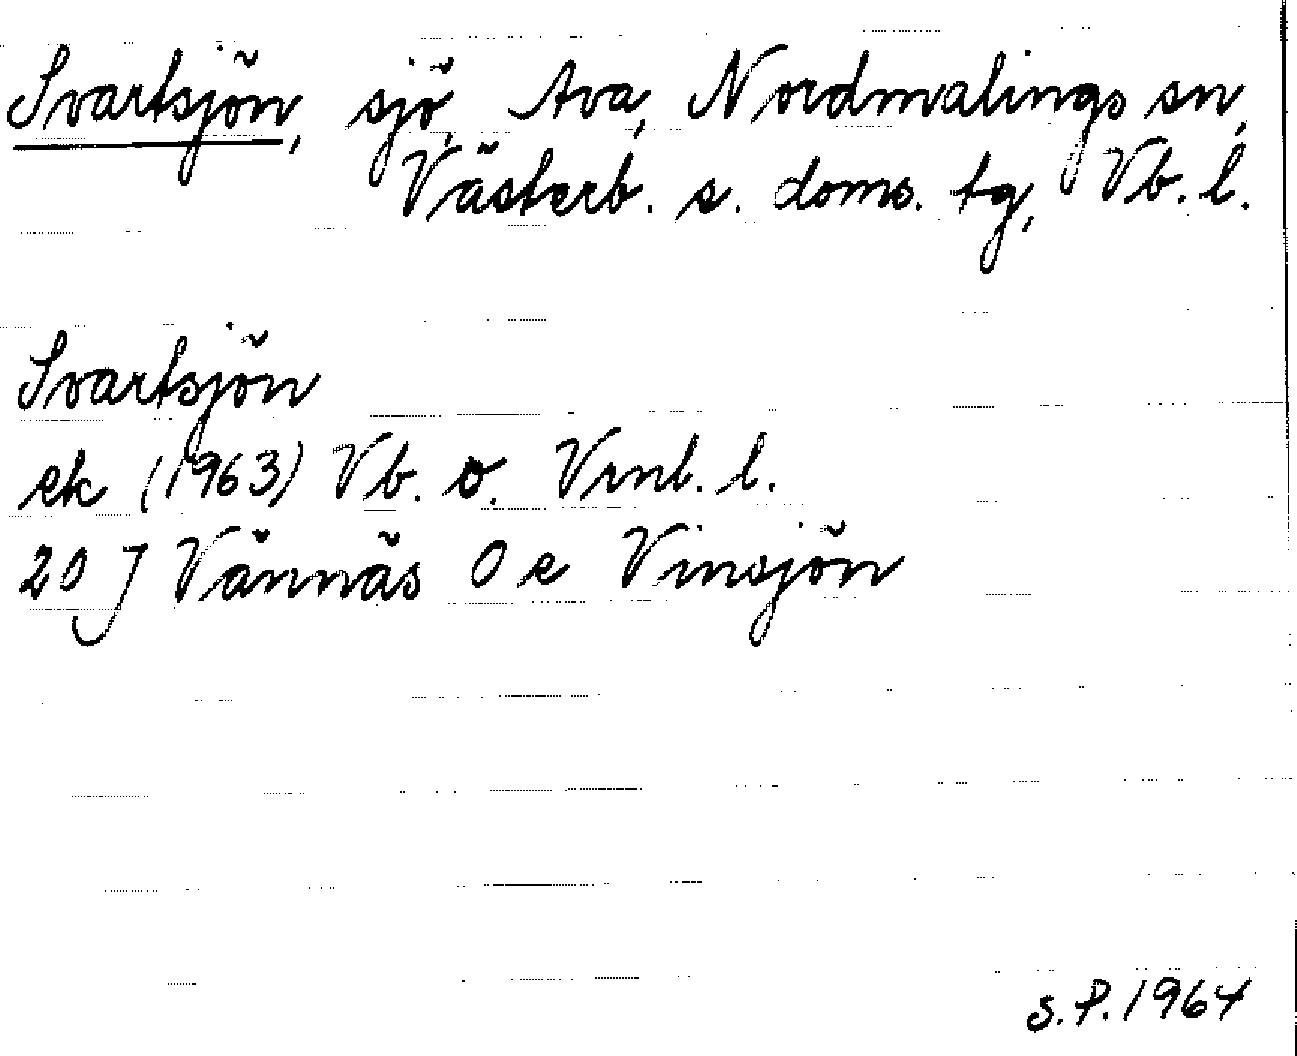 Svartsjön, sjö, Ava, Nordmalings sn,
Västerb. s. doms. tg, Vb. l.
Svartsjön
ek (1963) Vb. o. Vrnl. l.
20 J Vännäs 0 e Vinsjön
S.P. 1964